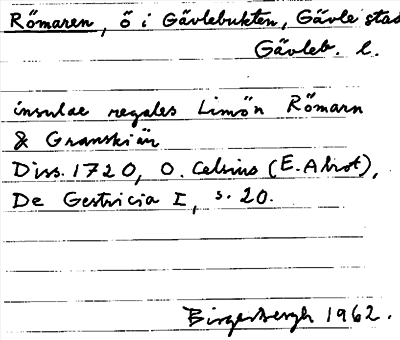 Römaren, ö i Gävlebukten, Gävle stad
Gävleb. l.
insulae regales Limön Römarn
& Granskiär
Diss. 1720, O. Celsius (E. Ahrot),
De Gestricia I, s. 20.
Birger Bergh 1962.